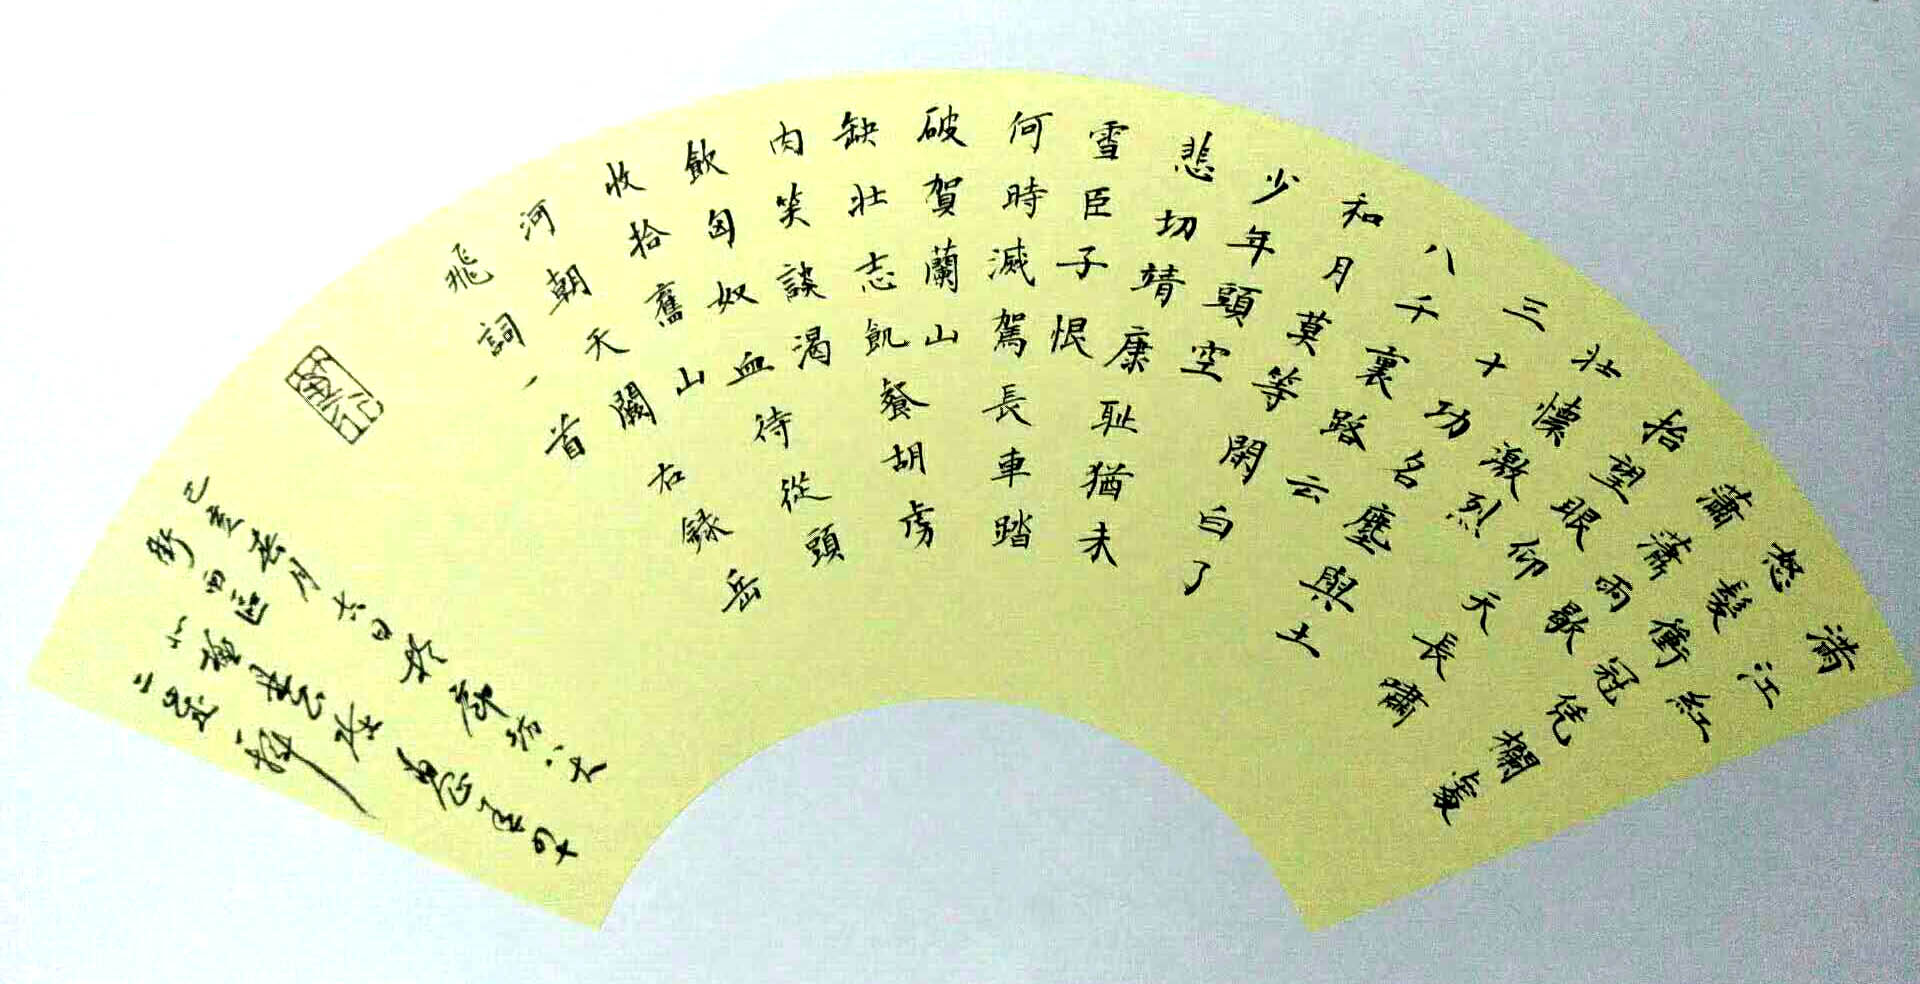 滿江紅
怒髮衝冠凭欄處
瀟瀟雨歇
抬望眼仰天長嘯
壯懷激烈
三十功名塵與土
八千裏路云
和月莫等閑白了
少年頭空
悲切靖康耻猶未
雪臣子恨
何時滅駕長車踏
破賀蘭山
缺壯志飢餐胡虜
肉笑談渴
飲匈奴血待從頭
收拾舊山
河朝天闕右録岳
飛詞一首
己亥 月六日於廊坊